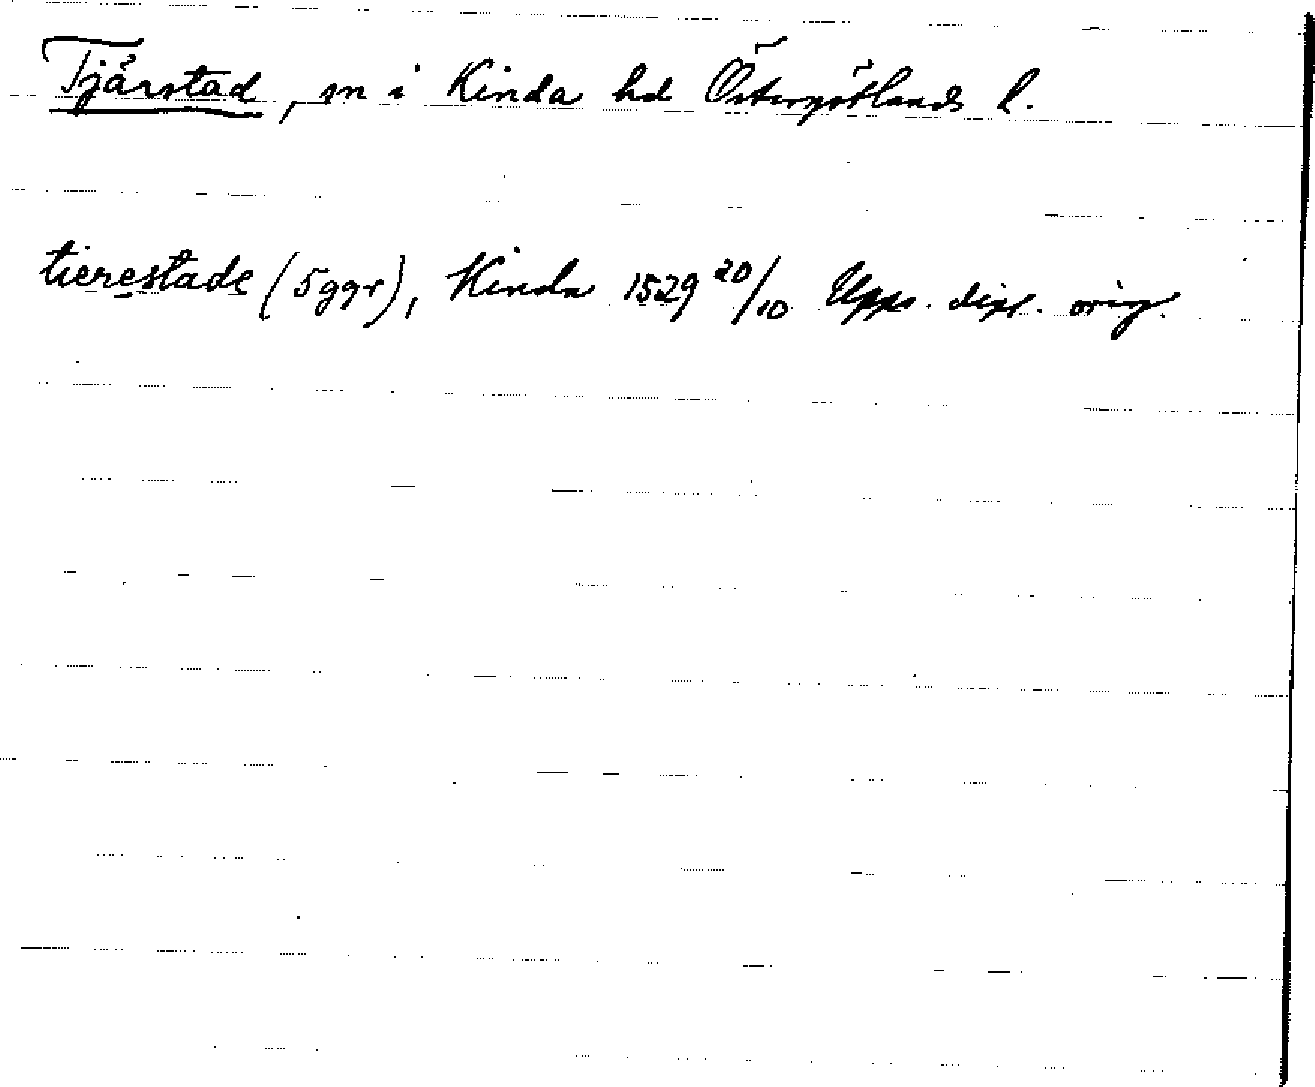 Tjärstad, sn i Kinda hd Östergötlands l.
tierestade (5ggr), Kinda 1529 20/10 Upps. dipl. orig.